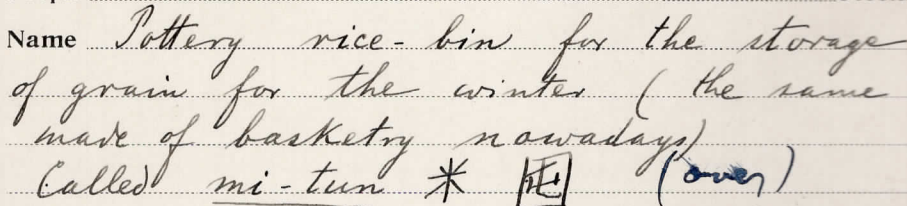 Name Pottery rice-bin for the storage
of grain for the winter (the same
made of basketry nowadays)
Called mi-tun 米 囤 (over)